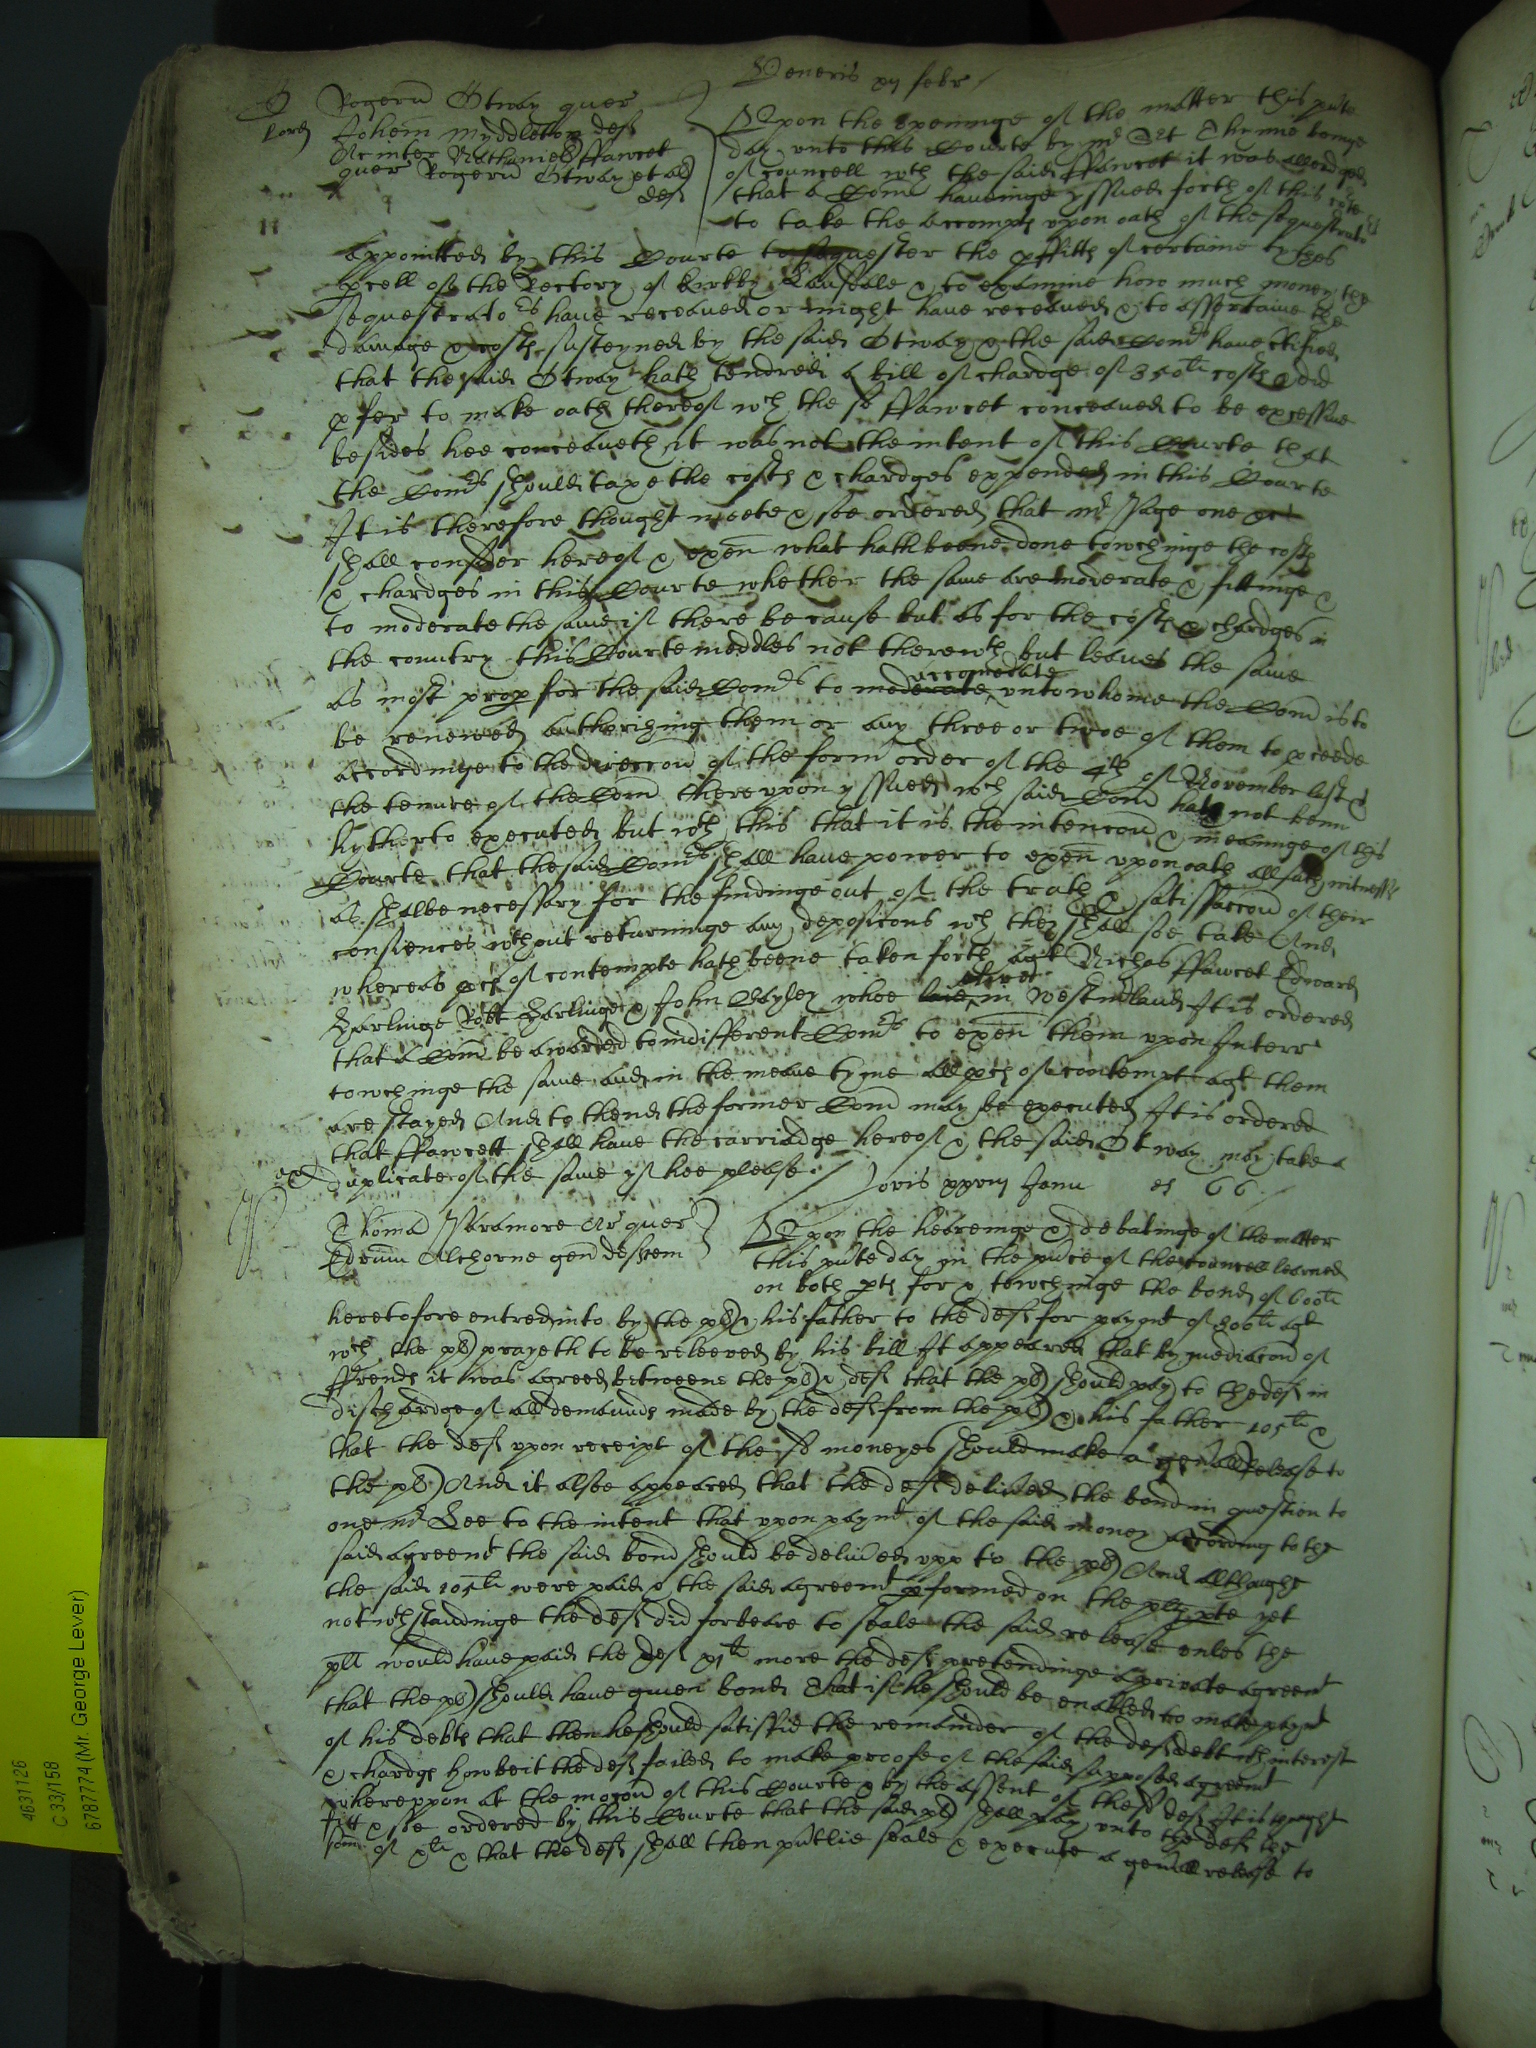 Veneris xij febr
O Rogerū Otway quer
Lord Johem Myddleton deft
Ac inter Nathaniel ffawcet
quer Rogerū Otway et al
deft
Upon the openinge of the matter this pnte
day unto this Courte by mr Sit Thynne beinge
of councell wth the said ffawcet it was alleadged
that a Com haveinge yssued forth of this
to take the accompts upon oath of the sequestrators
appointed by this Courte to sequester the pffitts of certaine tythes
pcell of the Rectory of Kirkby Lansdale & to examine how much money the
sequestrators have receaved or might have receaved & to assertaine the
damage & costs susteyned by the said Otway & the said Comrs have ctified
that the said Otway hath tendred a bill of chardge of 350li costs & did
pfer to make oath thereof wch the sd ffawcet conceaved to be excessive
besides hee conceaveth it was not the intent of this Courte that
the Comrs should taxe the costs & chardges expended in this Courte
It is therefore thought meete & soe ordered that mr Page one
shall consider hereof & exen what hath beene done towchinge the costs
& chardges in this Courte whether the same are moderate & fittinge &
to moderate the same if there be cause but as for the costs & chardges in
the country this Courte meddles not therewth but leaves the same
as most prop for the said Comrs to moderate accomodate unto whome the Com is to
be renewed authorizing them or any three or twoe of them to pceede
accordinge to the direccon of the form order of the 4th of November last &
the tenure of the Com thereupon yssued wch said Com hath not benn
hytherto executed but wth this that it is the intencon & meaninge of this
Courte that the said Comrs shall have power to exen upon oath all such witnesses
as shalbe necessary for the findinge out of the trath & satisfaccon of their
consiences wthout returninge any deposicons wch they shall soe take And
whereas pces of contempte hath beene taken forth agt Nichas ffawcet Edward
Harlinge Robt Harlinge & John Bayley whoe in Westmland It is ordered
that a Com be awarded to indifferent Comrs to exen them upon Interr
towchinge the same and in the meane tyme all pces of contempt agt them
are stayed And to thend the former Com may be executed It is ordered
that ffawcett shall have the carriadge hereof & the said Otway may take a
duplicate of the same yf hee please
Jovis xxviij Janu
66
Thomā Paramore Ar quer
Edrum Alchorne gen defftem
Upon the heareinge & debatinge of the matter
this pnte day in the pnce of the councell learned
on both pts for & towchinge the bond of 600li
heretofore entred into by the pl & his father to the deft for paymt of 300li agt
wch the pl prayeth to be releeved by his bill It appeared that by mediacon of
ffrends it was agreed betweene the pl & deft that the pl should pay to the deft in
dischardge of all demaunds made by the deft from the pl & his father 105li &
that the deft upon receipt of the sd moneyes should make a genall release to
the pl And it alsoe appeared that the deft delived the bond in question to
one mr Lee to the intent that upon paymt of the said money according to the
said agreemt the said bond should be delived upp to the pl And althought
the said 105li were paid & the said agreemt pformed on the plts pte yet
notwthstandinge the deft did forbeare to seale the said release unles the
plt would have paid the deft xjli more the deft pretendinge a private agreemt
that the pl should have given bond that if he should be enabled to make paymt
of his debts that then he should satisfie the remainder of the defts debt wth interest
& chardgs howbeit the deft failed to make proofe of the said supposed agreemt
whereuppon at the mocon of this Courte & by the assent of the sd deft It is thought
fitt & soe ordered by this Courte that the said pl shall pay unto the deft the
some of xli & that the deft shall then seale & execute a genall release to
4631126
C 33/158
6787774 (Mr. George Lever)